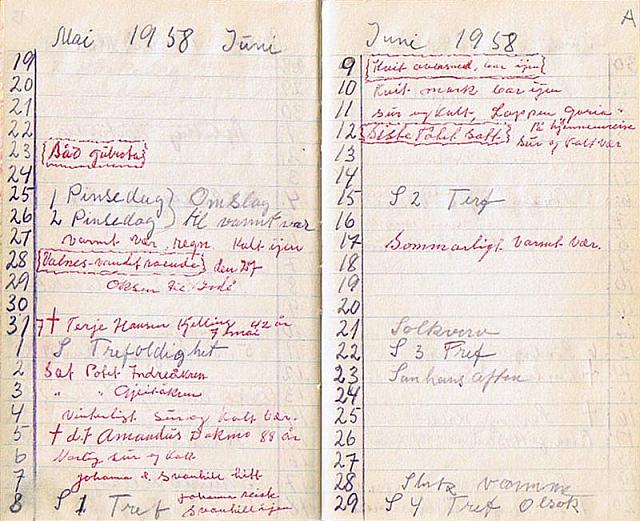 Mai 1958 Juni
19
20
21
22
23 Såd gubrota
24
25 1 Pinsedag) Omslag
26 2 Pinsedag) til varmt vær
27 varmt vær, regn Kalt igjen
28 Valnes-vandet den 27
29
30
31 7 † Terje Hansen Kjelling 42 år
7 mai
1 S Trefoldighet
2 Sat Potet Indreåkren
3 " " Gjeitåkren
4 vinterligt Sur og Kalt Vær.
5 † d.7 Amandus Dokmo 88 år
6 sur og Kalt
7 Johama & Svanhill hitt
8 S 1 Tref Johama reist
Svanhill igjen
A
Juni 1958
9 Kvit igjen
10 Kvit mark bar igjen
11 Sur og Kalt,
12 Siste Potet Satt På
Sur og Kalt vær
13
14
15 S 2 Tref
16
17 Sommarligt Varmt Vær.
18
19
20
21 Solkverv
22 S 3 Tref
23 Sanhans aften
24
25
26
27
28 varmme
29 S 4 Tref Olsok